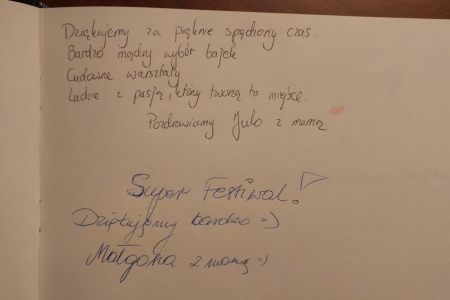 Dziękujemy za pięknie spędzony czas.
Bardzo mądry wybór bajek
Cudowne warsztaty
Ludzie z pasją, który tworzą to miejsce.
Pozdrawiamy Julo z mamą
Super Festiwal!
Dziękujemy bardzo =)
Małgosia z mamą =)